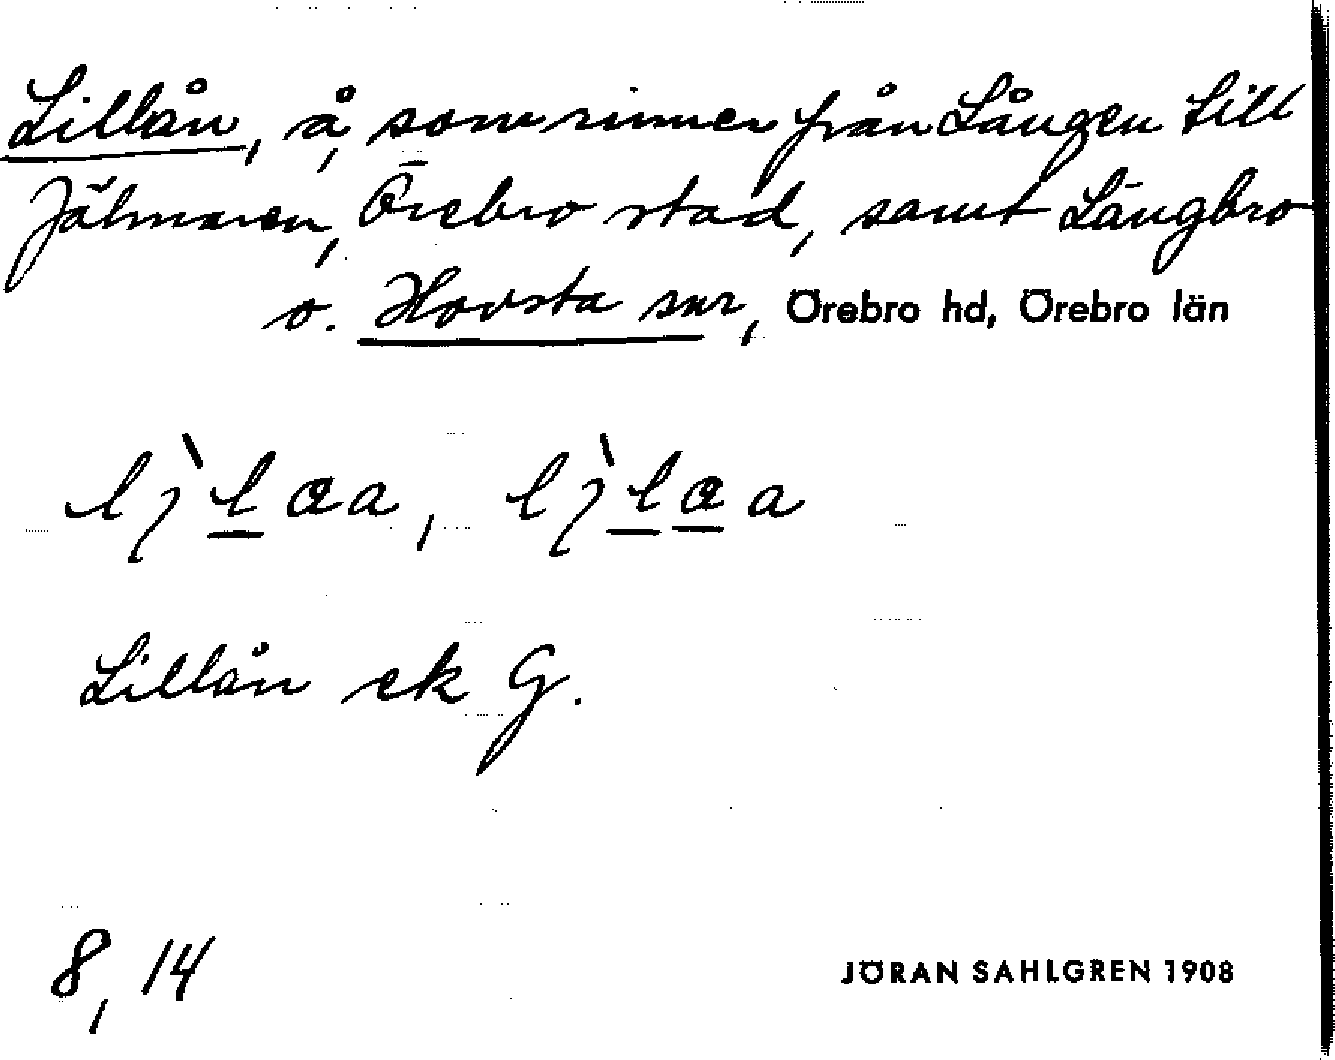 Lillån, å, som rinner från Lången till
Jälmaren, Örebro stad, samt Längbro
o. Hovsta snr, Örebro hd, Örebro län
Lillån ek G.
8, 14
JÖRAN SAHLGREN 1908